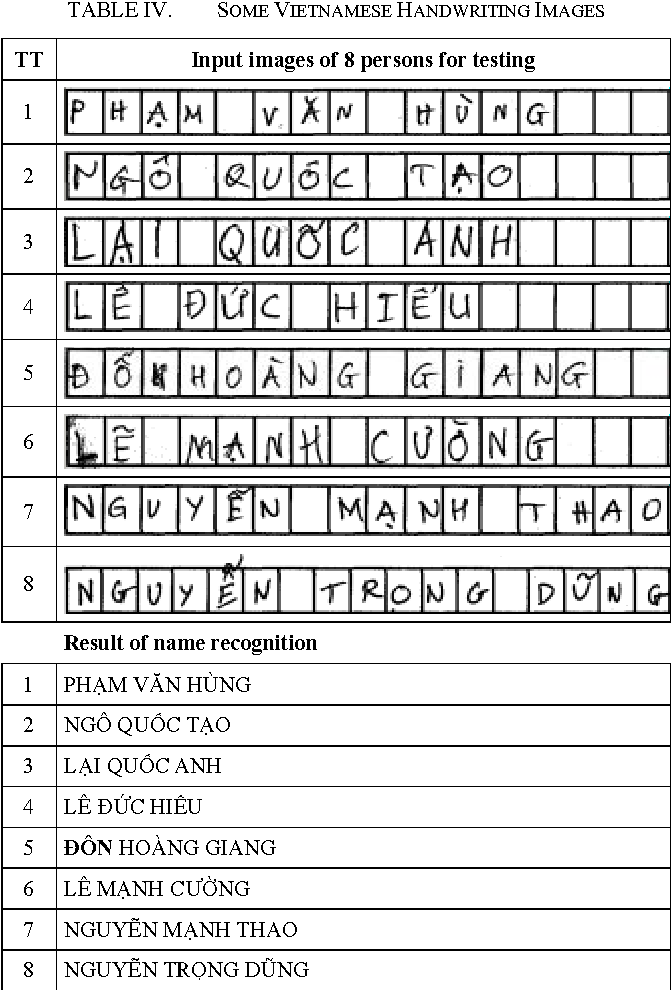 TABLE IV. SOME VIETNAMESE HANDWRITING IMAGES
TT Input images of 8 persons for testing
1 PHẠM VĂN HÙNG
2 NGÔ QUỐC TẠO
3 LẠI QUỐC ANH
4 LÊ ĐỨC HIẾU
5 ĐỖ HOÀNG GIANG
6 LÊ MẠNH CƯỜNG
7 NGUYỄN MẠNH THAO
8 NGUYỄN TRỌNG DŨNG
Result of name recognition
1 PHẠM VĂN HÙNG
2 NGÔ QUỐC TẠO
3 LẠI QUỐC ANH
4 LÊ ĐỨC HIÊU
5 ĐÔN HOÀNG GIANG
6 LÊ MẠNH CƯỜNG
7 NGUYỄN MẠNH THAO
8 NGUYỄN TRỌNG DŨNG